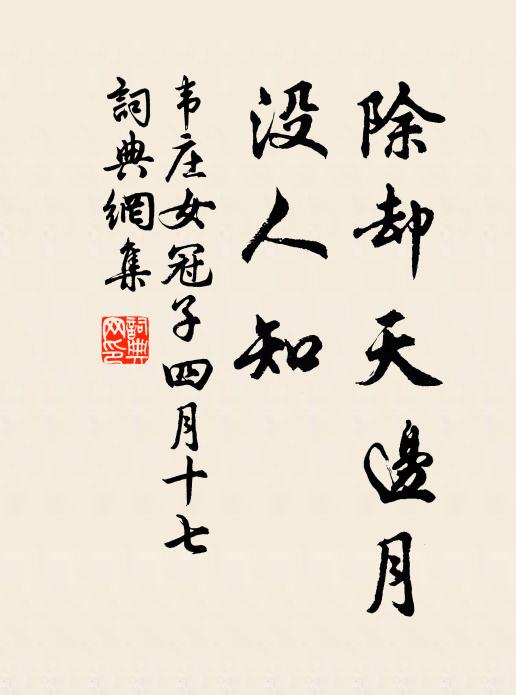 除却天邊月
没人知
韦庄女冠子四月十七
詞典網集
詞典
网印